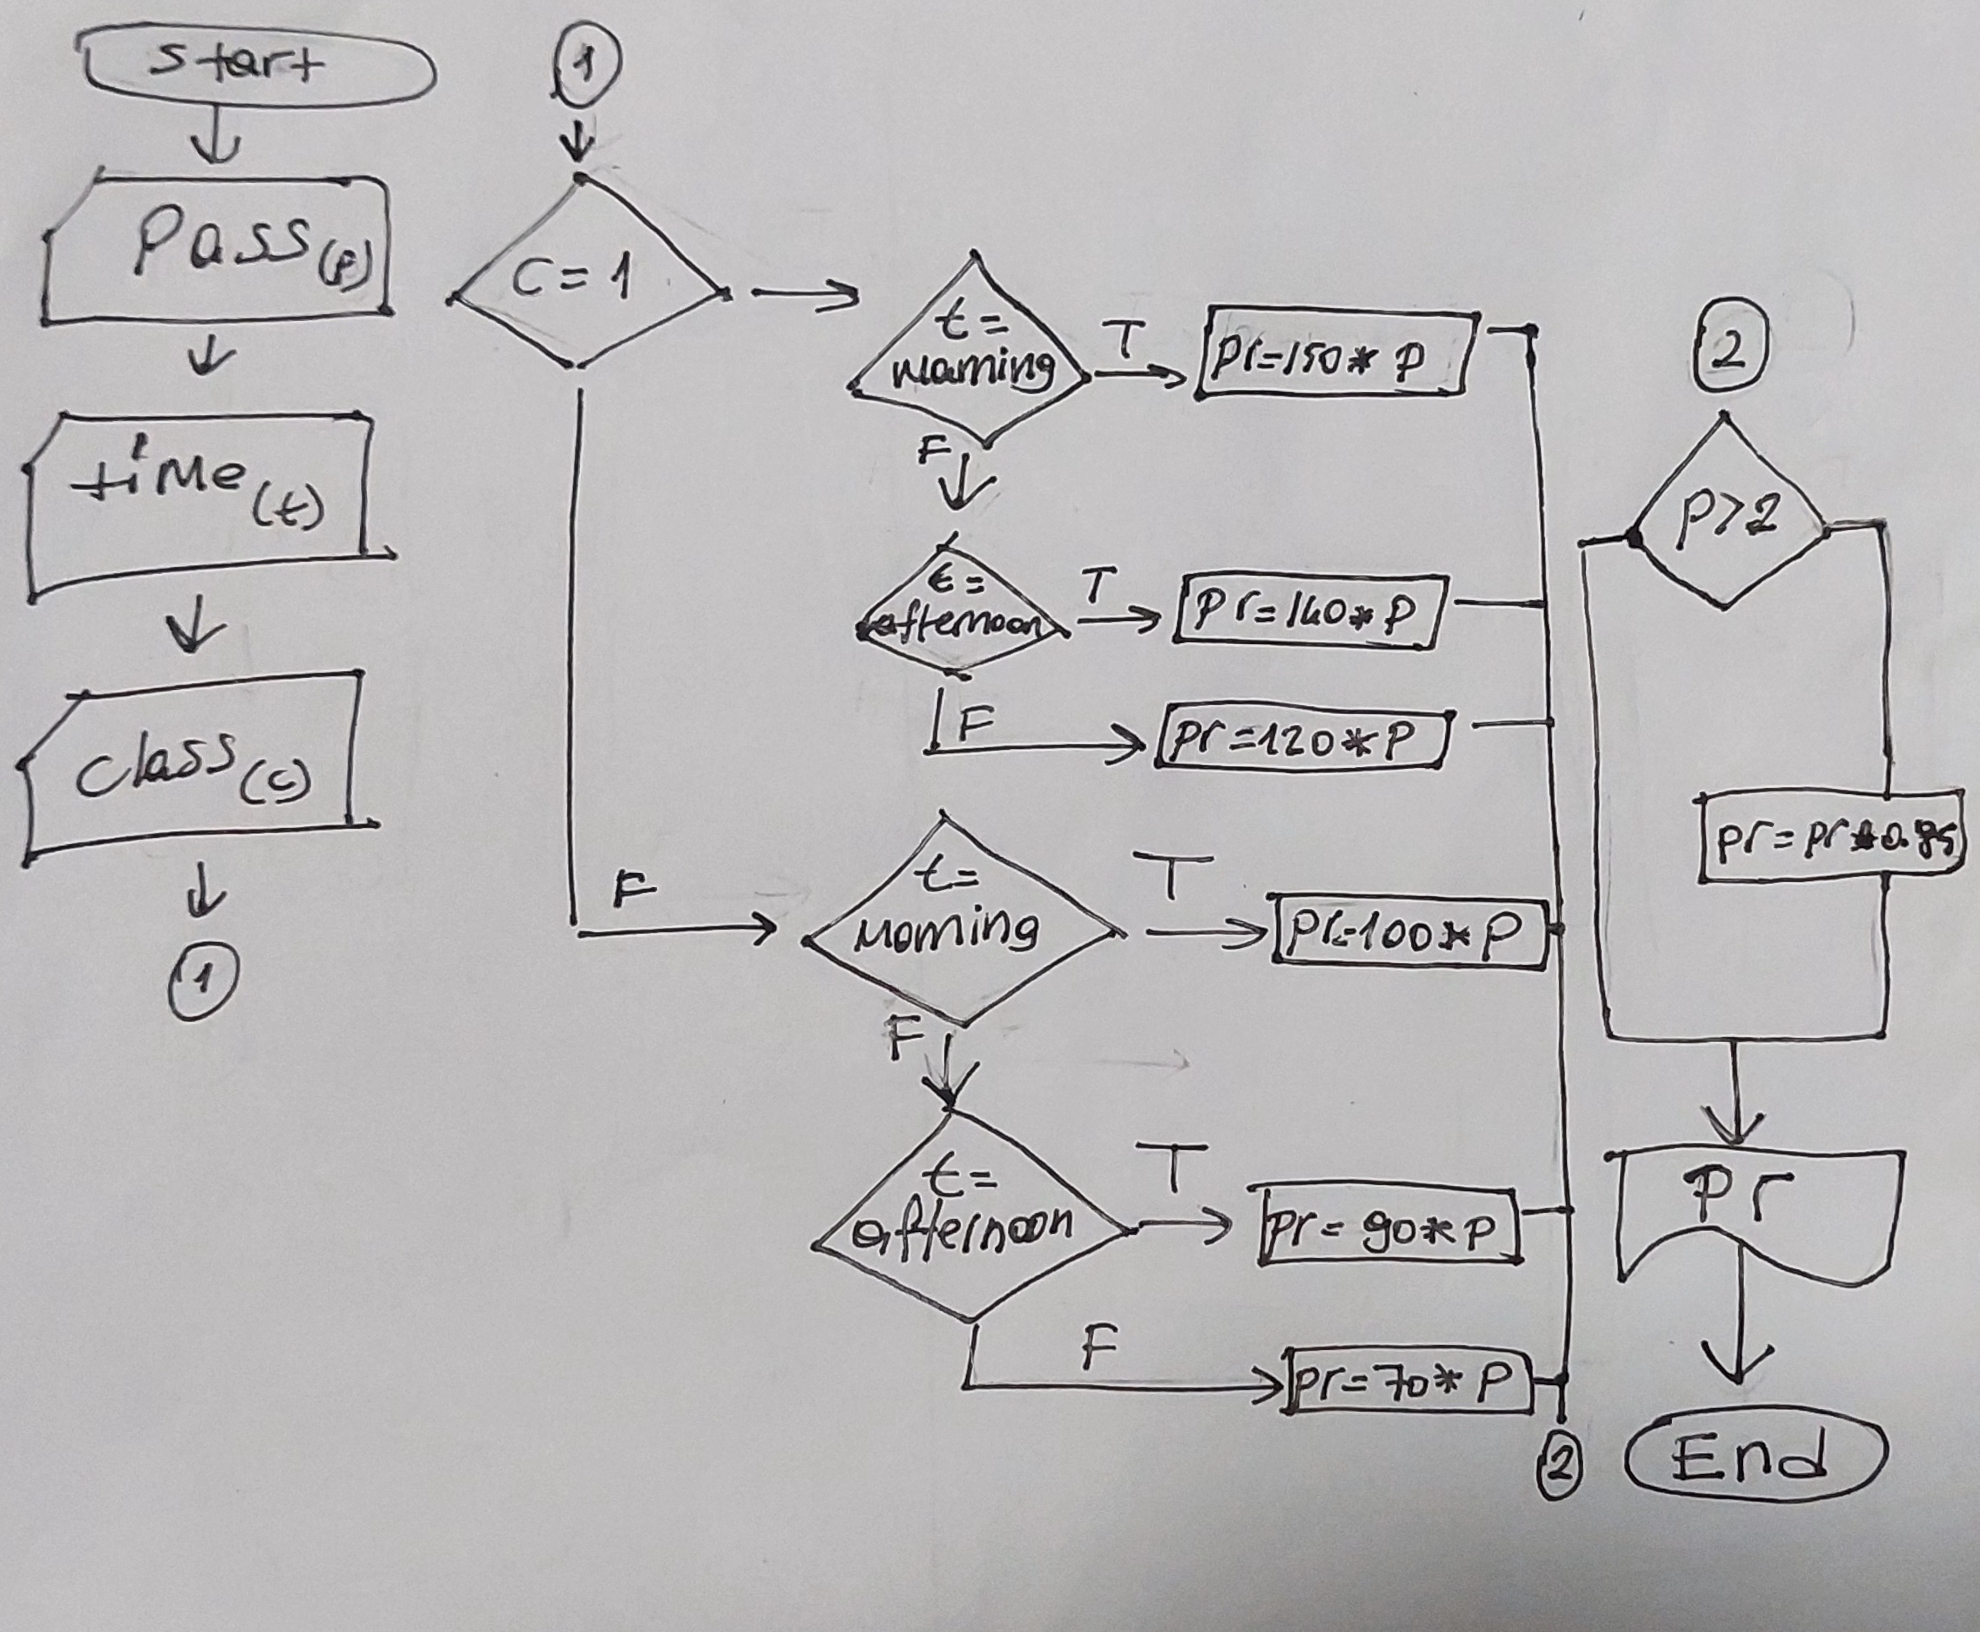 start
Pass(p)
time(t)
class(c)
1
1
C=1
t=
morning
T
Pr=150* P
F
t=
afternoon
T
Pr=140* P
F
Pr=120* P
F
t=
morning
T
Pr=100* P
F
t=
afternoon
T
Pr=90* P
F
Pr=70* P
2
2
P>2
Pr=Pr*0.85
Pr
End